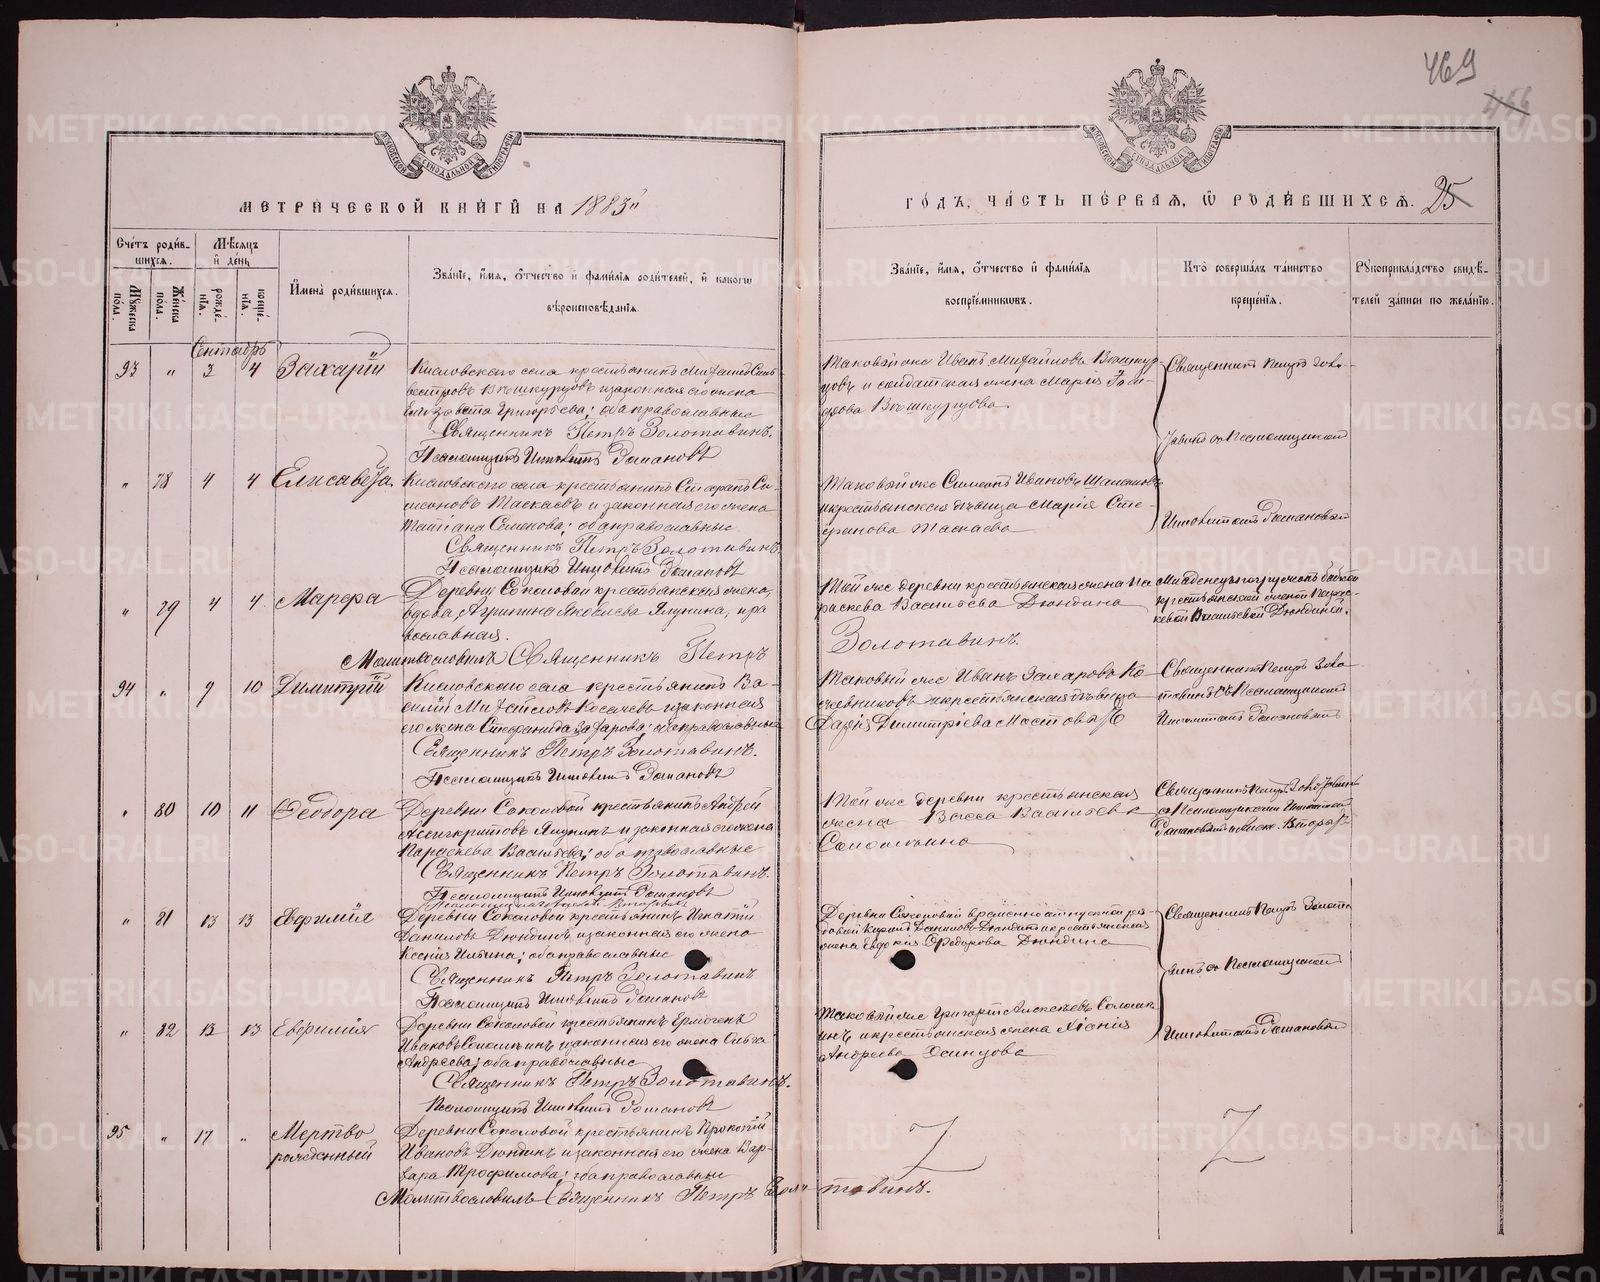 469
456
МОСКОВСКОЙ СѴНОДАЛЬНОЙ ТИПОГРАФІИ
МОСКОВСКОЙ СѴНОДАЛЬНОЙ ТИПОГРАФІИ
МЕТРИЧЕСКОЙ КНИГИ НА 1883
ГОДЪ, ЧАСТЬ ПЕРВАЯ, Ѡ РОДИВШИХСЯ. 25
Счетъ родив-
шихся.
Мужеска пола.
Женска пола.
Мѣсяцъ
и день
рожде-
нія.
креще-
нія.
Имена родившихся.
Званіе, имя, отчество и фамилія родителей, и какого
вѣроисповѣданія.
Званіе, имя, отчество и фамилія
воспріемниковъ.
Кто совершалъ таинство
крещенія.
Рукоприкладство свидѣ-
телей записи по желанію.
Сентябрь
93 " 3 4 Захарій
Кисловскаго села крестьянинъ Михаилъ Силь-
вестровъ и законная его жена
Елизавета Григорьева; оба православные
Священникъ Петръ Золотавинъ.
Псаломщикъ Ипполитъ Романовъ
Таковой же Иванъ Михайловъ
и солдатская жена Марія
Священникъ Петръ Золо-
тавинъ съ Псаломщикомъ
Ипполитомъ Романовымъ
" 78 4 4 Елисавета.
Кисловскаго села крестьянинъ Стефанъ Си-
меоновъ Таскаевъ и законная его жена
Татіана Семенова; оба православные
Священникъ Петръ Золотавинъ
Псаломщикъ Ипполитъ Романовъ
Таковой же Симеонъ Ивановъ
и крестьянская дѣвица Марія Сте-
фанова Таскаева
" 79 4 4 Марфа
Деревни Соколовой крестьянская жена,
вдова, Агрипина Яковлева Ягунина, пра
вославная.
Молитвословилъ Священникъ Петръ
Золотавинъ.
Той же деревни крестьянская жена Па
раскева Васильева Дюндина
Младенецъ погруженъ бабкой
крестьянской женой Парас-
кевой Васильевой Дюндиной.
94 " 9 10 Димитрій
Кисловскаго села крестьянинъ Ва-
силій Михайловъ Косачевъ и законная
его жена Стефанида Захарова; оба православные
Священникъ Петръ Золотавинъ.
Псаломщикъ Ипполитъ Романовъ
Таковый же Иванъ Захаровъ Ко-
чевниковъ и крестьянская дѣвица
Дарія Димитріева
Священникъ Петръ Золо
тавинъ съ Псаломщикомъ
Ипполитомъ Романовымъ
" 80 10 11 Ѳеодора
Деревни Соколовой крестьянинъ Андрей
Асинкритовъ Ягунинъ и законная его жена
Параскева Васильева; оба православные
Священникъ Петръ Золотавинъ.
Псаломщикъ Ипполитъ Романовъ
Той же деревни крестьянская
жена Васса Васильева
Соломеина
Священникъ Петръ Золотавинъ
съ Псаломщикомъ Ипполитомъ
Романовымъ
" 81 13 13 Евфимія
Деревни Соколовой крестьянинъ Игнатій
Даниловъ Дюндинъ и законная его жена
Ксенія Ильина; оба православные
Священникъ Петръ Золотавинъ
Псаломщикъ Ипполитъ Романовъ
Деревни Соколовой временно отпускной ря-
довой Кирилъ Даниловъ Дюндинъ и крестьянская
жена Евдокія Ѳеодорова Дюндина
Священникъ Петръ Золота
винъ съ Псаломщикомъ
Ипполитомъ Романовымъ
" 82 13 13 Евфимія
Деревни Соколовой крестьянинъ Ермогенъ
Ивановъ Соломеинъ и законная его жена Ольга
Андреева; оба православные
Священникъ Петръ Золотавинъ.
Псаломщикъ Ипполитъ Романовъ
Таковой же Григорій Алексѣевъ Соломе-
инъ и крестьянская жена Хіонія
Андреева Осинцова
95 " 17 " Мертво
рожденный
Деревни Соколовой крестьянинъ Прокопій
Ивановъ Дюндинъ и законная его жена Вар-
вара Трофимова; оба православные
Молитвословилъ Священникъ Петръ Золотавинъ.
METRIKI.GASO-URAL.RU